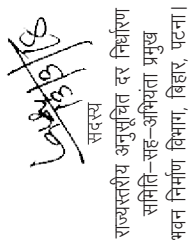 सदस्य
राज्यस्तरीय अनुसूचित दर निर्धारण
समिति–सह–अभियंता प्रमुख
भवन निर्माण विभाग, बिहार, पटना।